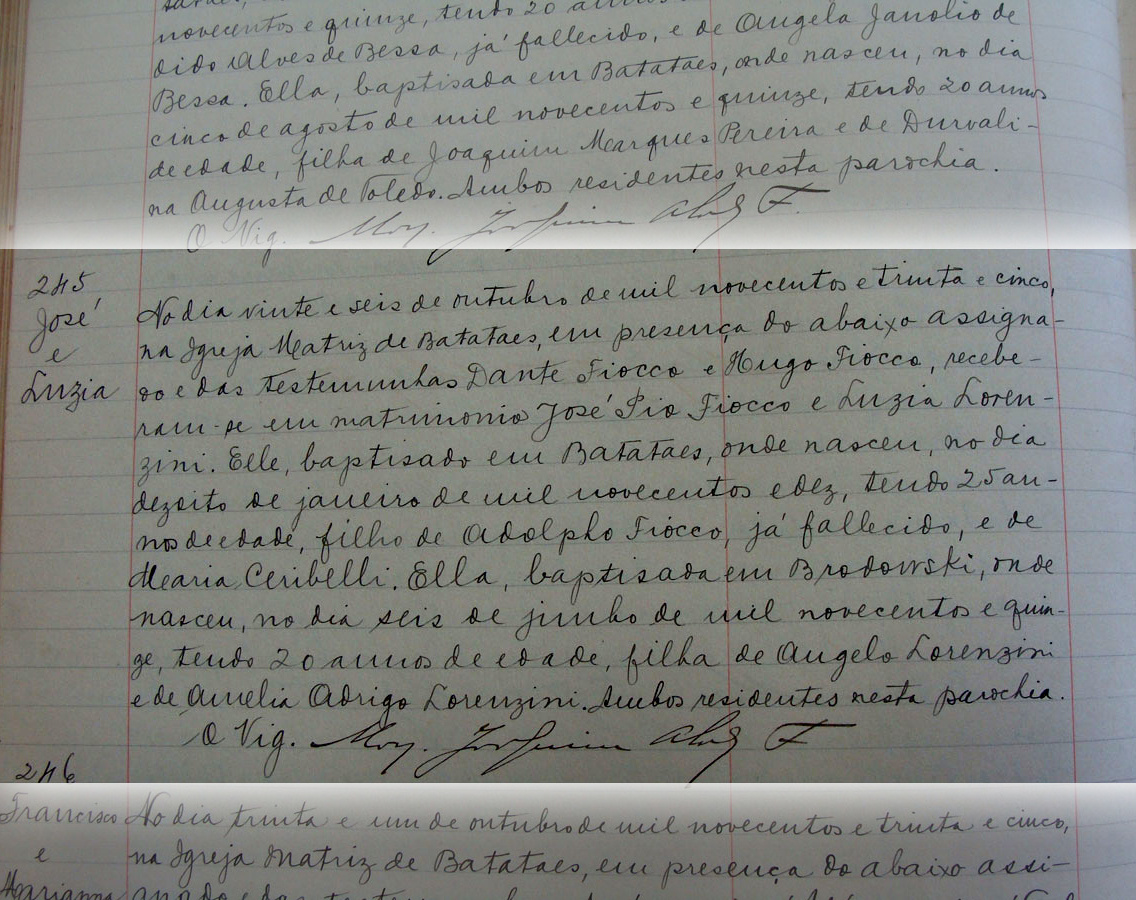 novecentos e quinze, tendo 20 annos
dido Alves de Bessa, já fallecido, e de Angela Janolio de
Bessa. Ella, baptisada em Batataes, onde nasceu, no dia
cinco de agosto de mil novecentos e quinze, tendo 20 annos
de edade, filha de Joaquim Marques Pereira e de Durvali-
na Augusta de Toledo. Ambos residentes nesta parochia.
O Vig. Mons. Joaquim Alves F.
245
José
e
Luzia
No dia vinte e seis de outubro de mil novecentos e trinta e cinco,
na Igreja Matriz de Batataes, em presença do abaixo assigna-
do e das testemunhas Dante Fiocco e Hugo Fiocco, recebe-
ram-se em matrimonio José Pio Fiocco e Luzia Loren-
zini. Elle, baptisado em Batataes, onde nasceu, no dia
dezoito de janeiro de mil novecentos e dez, tendo 25 an-
nos de edade, filho de Adolpho Fiocco, já fallecido, e de
Maria Ceribelli. Ella, baptisada em Brodowski, onde
nasceu, no dia seis de junho de mil novecentos e quin-
ze, tendo 20 annos de edade, filha de Angelo Lorenzini
e de Amelia Adrigo Lorenzini. Ambos residentes nesta parochia.
O Vig. Mons. Joaquim Alves F.
246
Francisco
e
Marianna
No dia trinta e um de outubro de mil novecentos e trinta e cinco,
na Igreja Matriz de Batataes, em presença do abaixo assi-